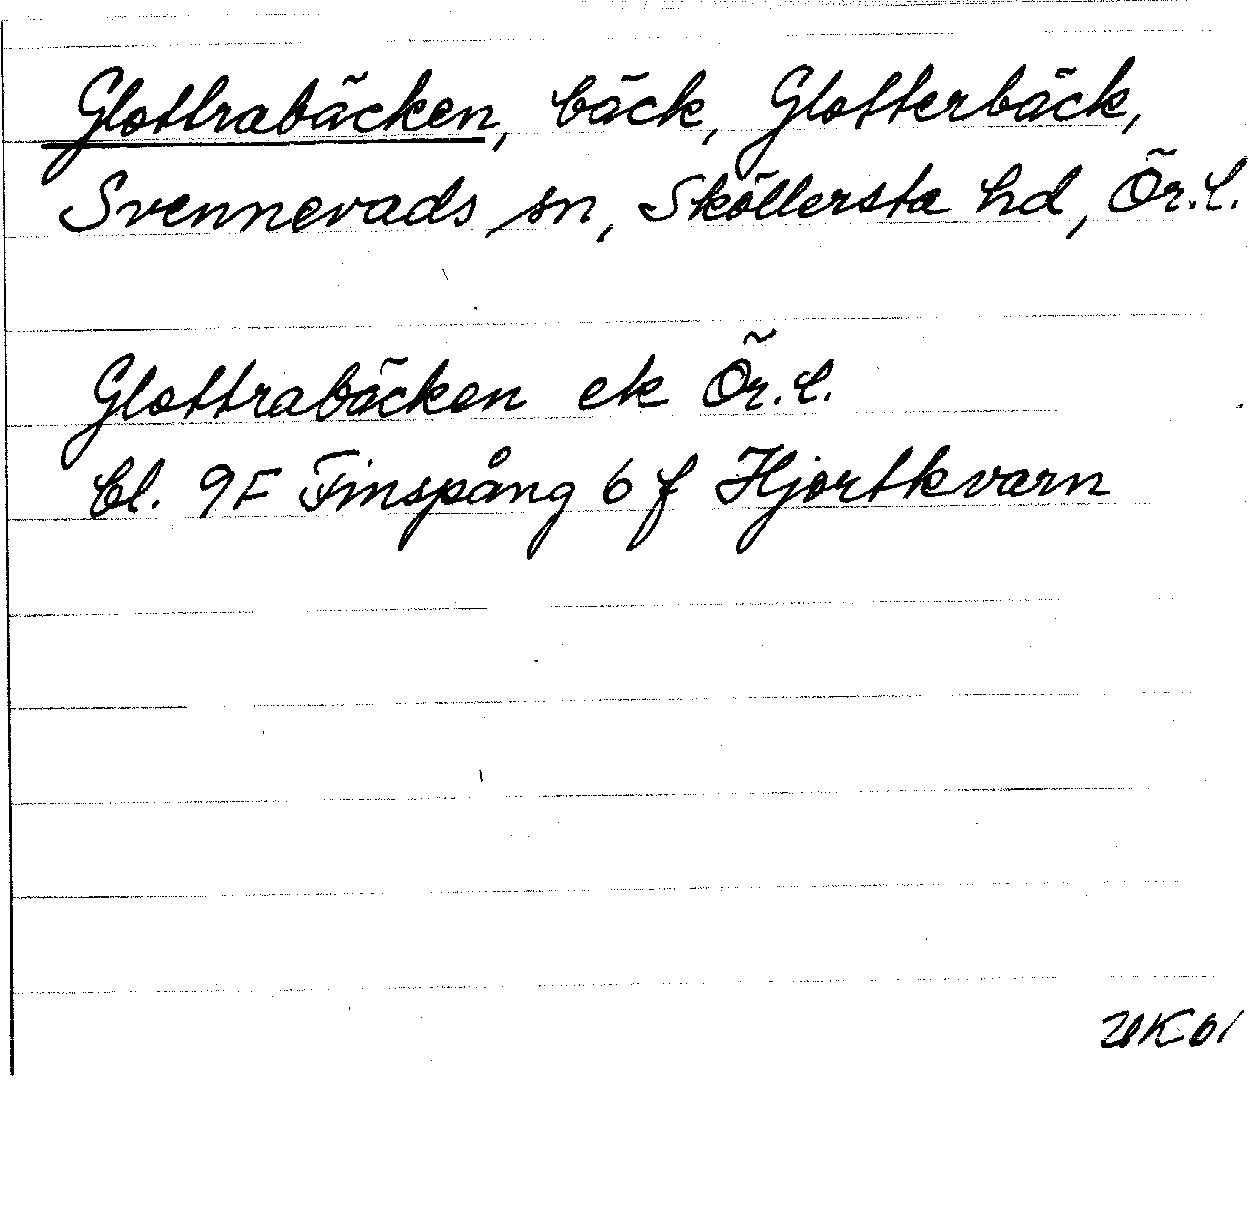 Glottrabäcken, bäck, Glotterbäck,
Svennevads sn, Sköllersta hd, Ör.l.
Glottrabäcken ek Ör.l.
bl. 9F Finspång 6 f Hjortkvarn
UK61